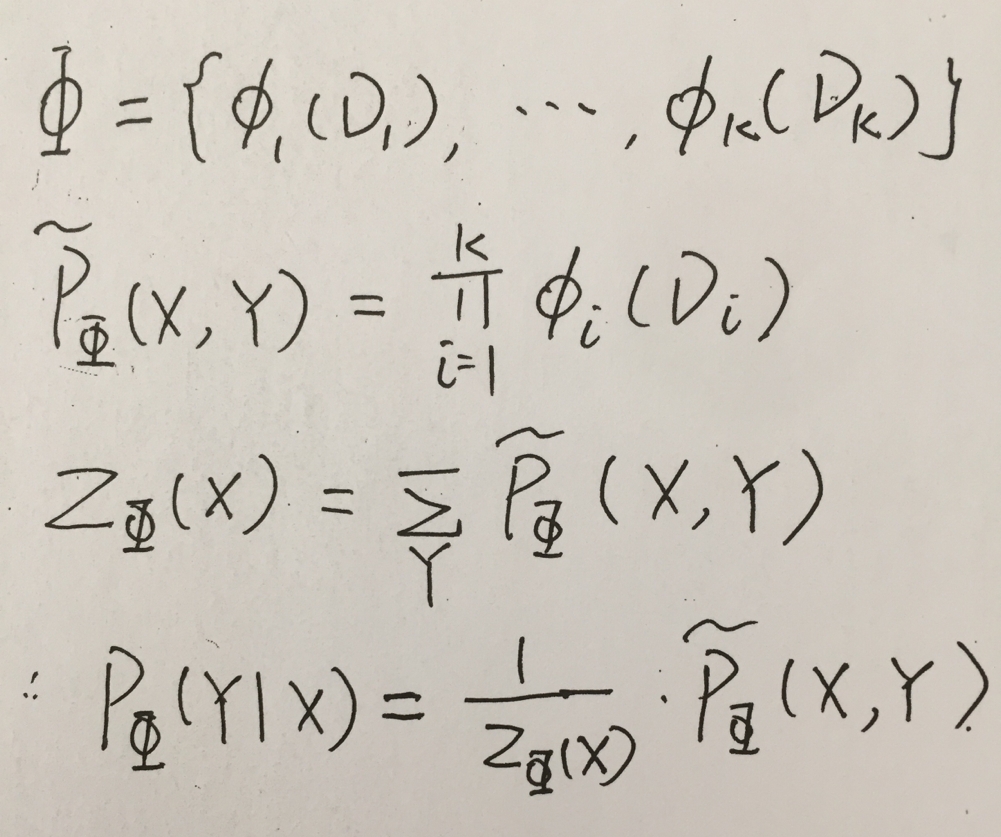 Φ = {ϕ₁(D₁), ⋯, ϕₖ(Dₖ)}
P̃_Φ(X, Y) = ∏_{i=1}^{k} ϕᵢ(Dᵢ)
Z_Φ(X) = Σ_Y P̃_Φ(X, Y)
∴ P_Φ(Y|X) = 1/Z_Φ(X) · P̃_Φ(X, Y)